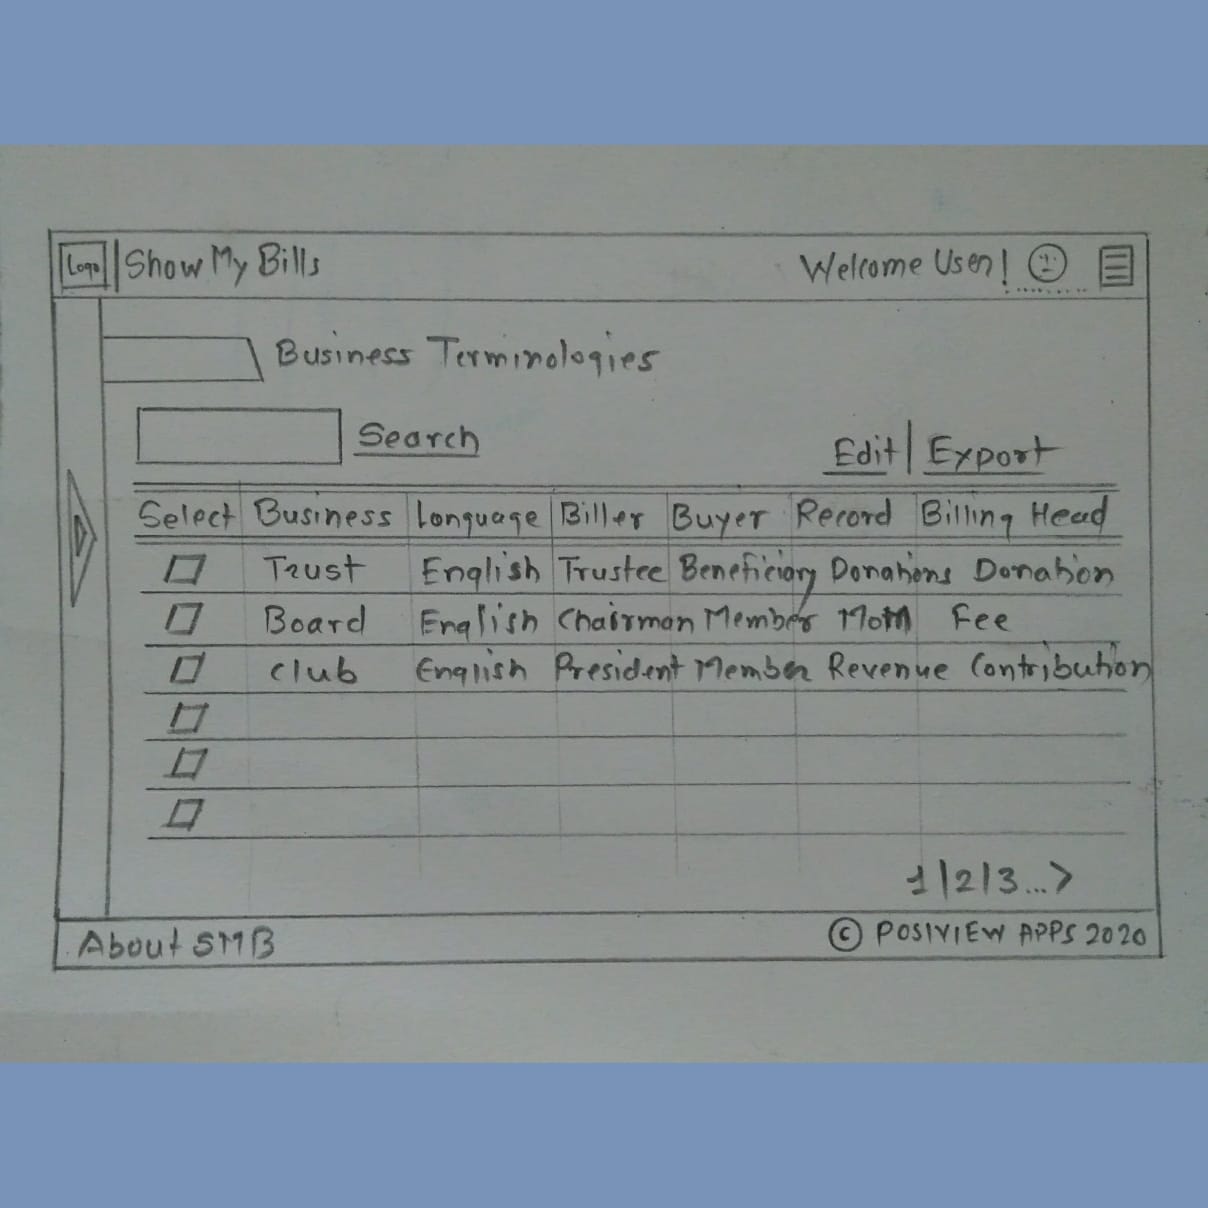 Logo Show My Bills Welcome User!
Business Terminologies
Search
Edit | Export
Select Business Language Biller Buyer Record Billing Head
Trust English Trustee Beneficiary Donations Donation
Board English Chairman Member MoM Fee
Club English President Member Revenue Contribution
1|2|3...>
About SMB © POSIVIEW APPS 2020